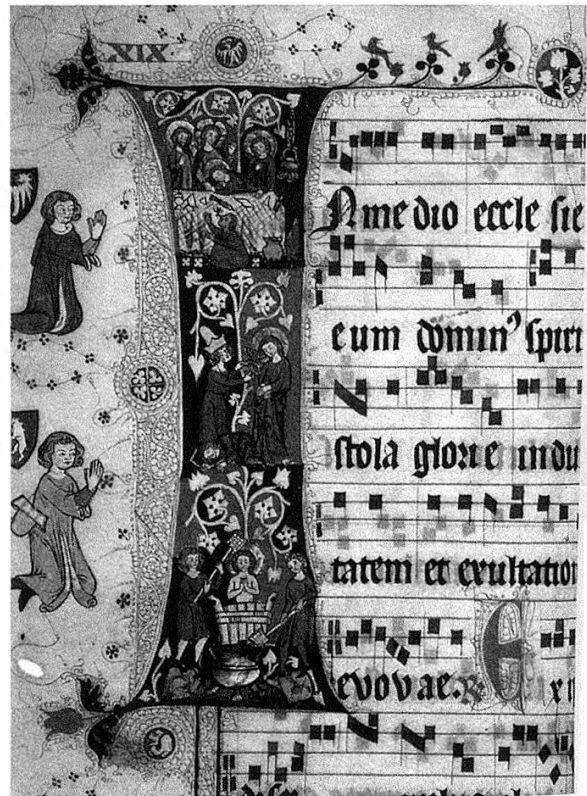 XIX
In medio eccle sie
eum domin⁹ spiri
stola glorie indu
tatem et exultatio
evovae. R E x